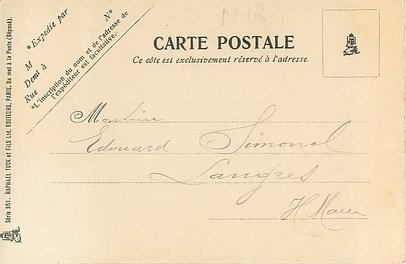 *Expédié par
M
Demt à
Rue N°
*L'inscription du nom et de l'adresse de
l'expéditeur est facultative.
CARTE POSTALE
Ce côté est exclusivement réservé à l'adresse.
Monsieur
Edouard Simonel
Langres
H. Marne
Série 351. RAPHAEL TUCK et FILS Ltd, EDITEURS, PARIS. De mot à la Poste (Déposé).